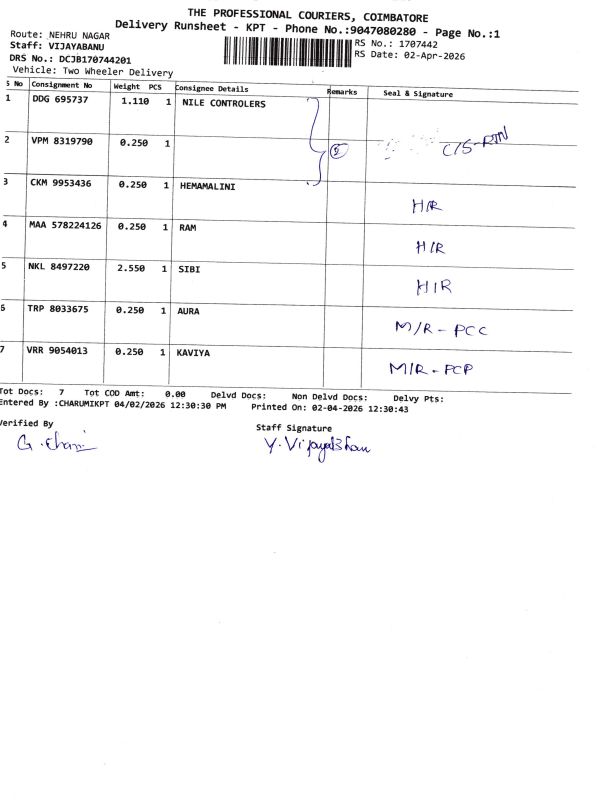 THE PROFESSIONAL COURIERS, COIMBATORE
Delivery Runsheet - KPT - Phone No.:9047080280 - Page No.:1
Route: NEHRU NAGAR
Staff: VIJAYABANU
DRS No.: DCJB170744201
Vehicle: Two Wheeler Delivery
RS No.: 1707442
RS Date: 02-Apr-2026
S No Consignment No Weight PCS Consignee Details Remarks Seal & Signature
1 DDG 695737 1.110 1 NILE CONTROLERS
2 VPM 8319790 0.250 1 C/S-RTN
3 CKM 9953436 0.250 1 HEMAMALINI H/R
4 MAA 578224126 0.250 1 RAM H/R
5 NKL 8497220 2.550 1 SIBI H/R
6 TRP 8033675 0.250 1 AURA M/R - PCC
7 VRR 9054013 0.250 1 KAVIYA M/R - PCP
Tot Docs: 7 Tot COD Amt: 0.00 Delvd Docs: Non Delvd Docs: Delvy Pts:
Entered By :CHARUMIKPT 04/02/2026 12:30:30 PM Printed On: 02-04-2026 12:30:43
Verified By
Staff Signature